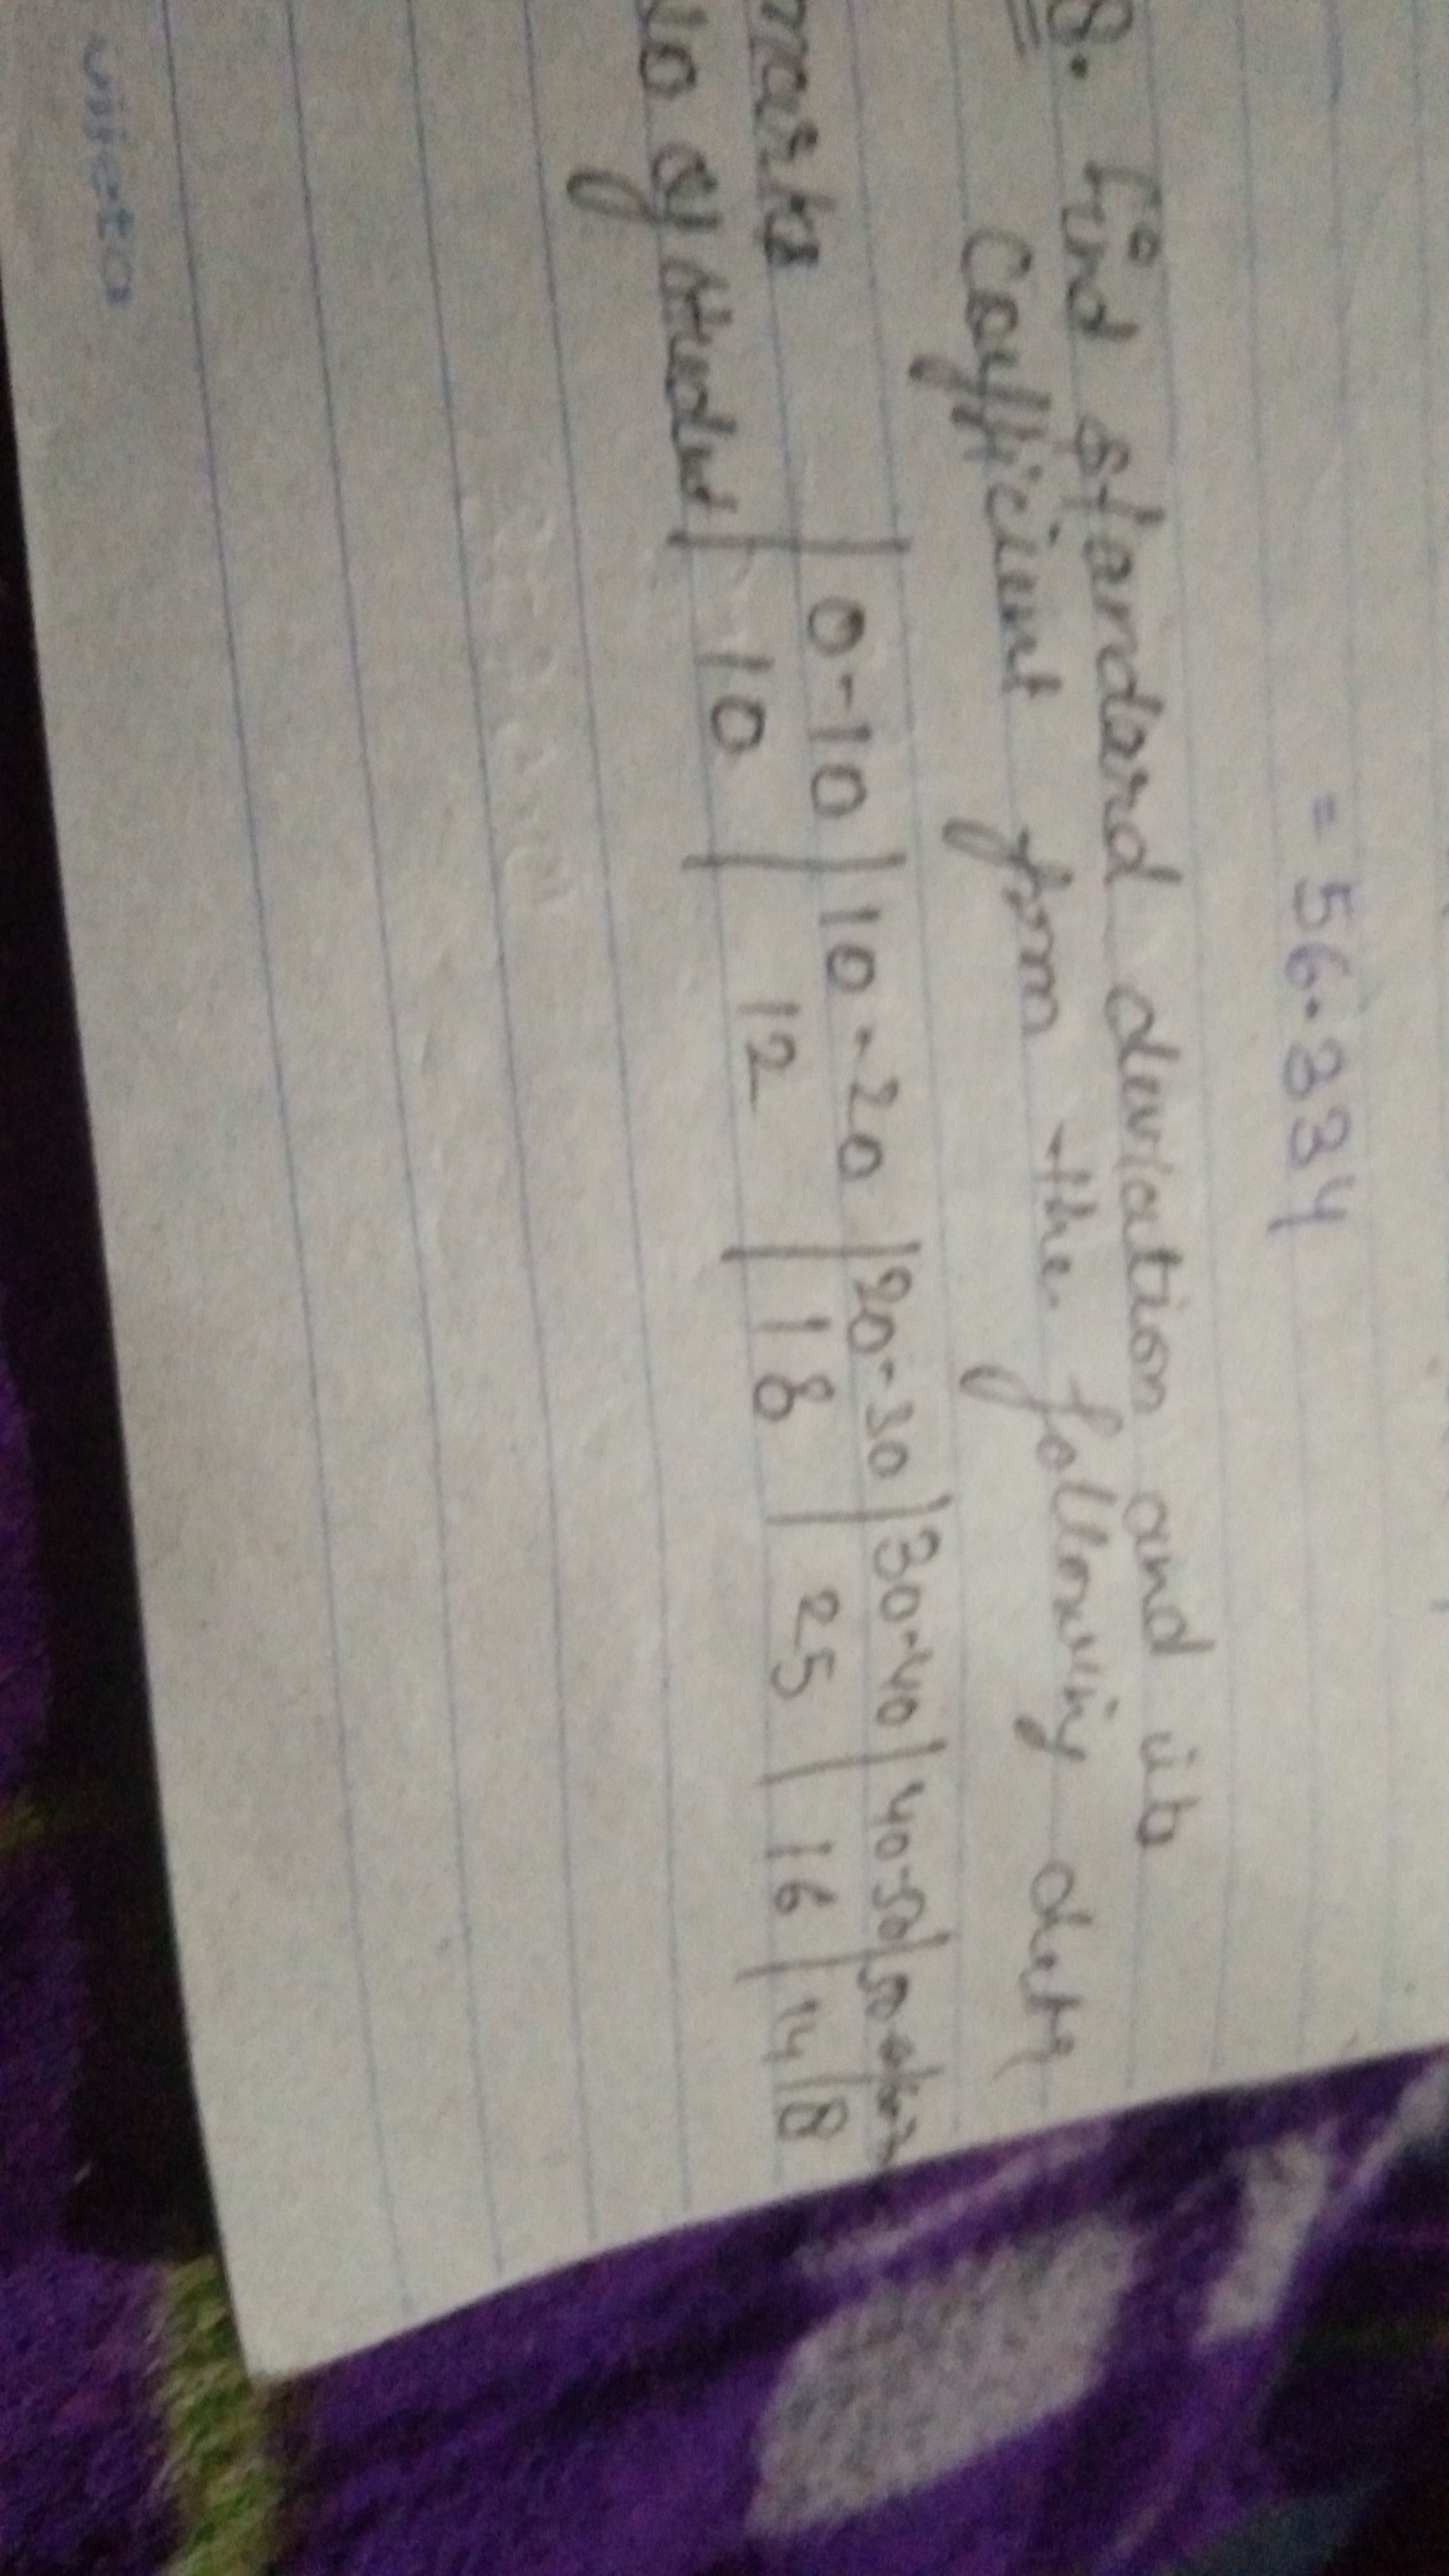 = 56.334
8. Find standard deviation and its
Cofficient from the following data
marks | 0-10 | 10-20 | 20-30 | 30-40 | 40-50 | 50-
No of student | 10 | 12 | 18 | 25 | 16 | 14 | 8